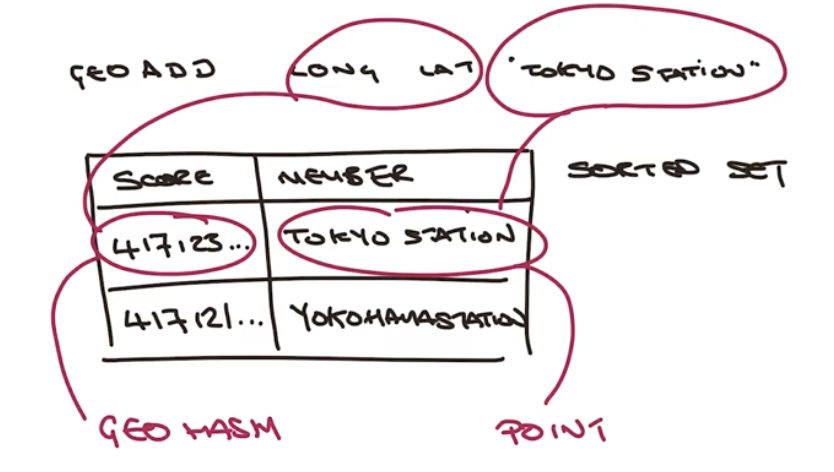 GEOADD LONG LAT "TOKYO STATION"
SCORE MEMBER SORTED SET
417123... TOKYO STATION
417121... YOKOHAMASTATION
GEOHASH POINT